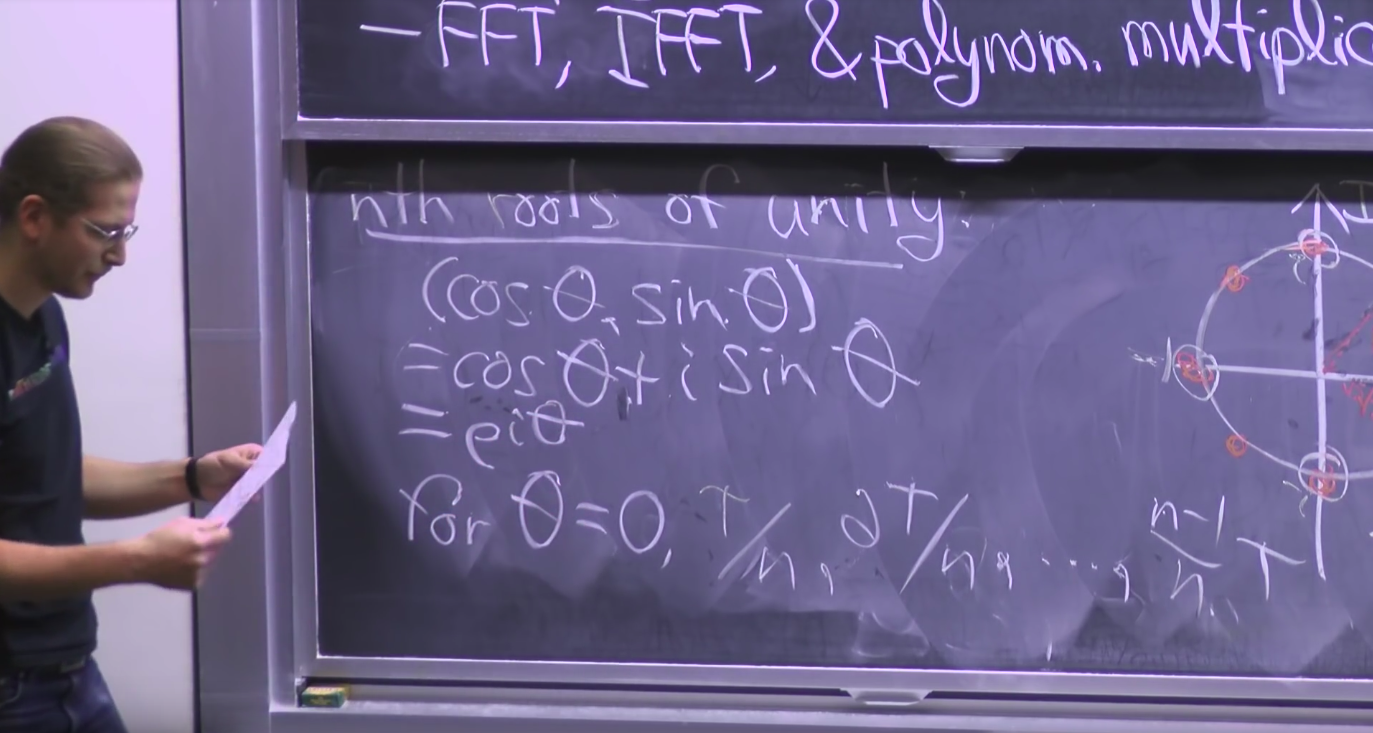 – FFT, IFFT, & polynom. multiplic
nth roots of unity:
(cos θ, sin θ)
= cos θ + i sin θ
= e^{iθ}
for θ = 0, τ/n, 2τ/n, ..., n-1/n τ
-1